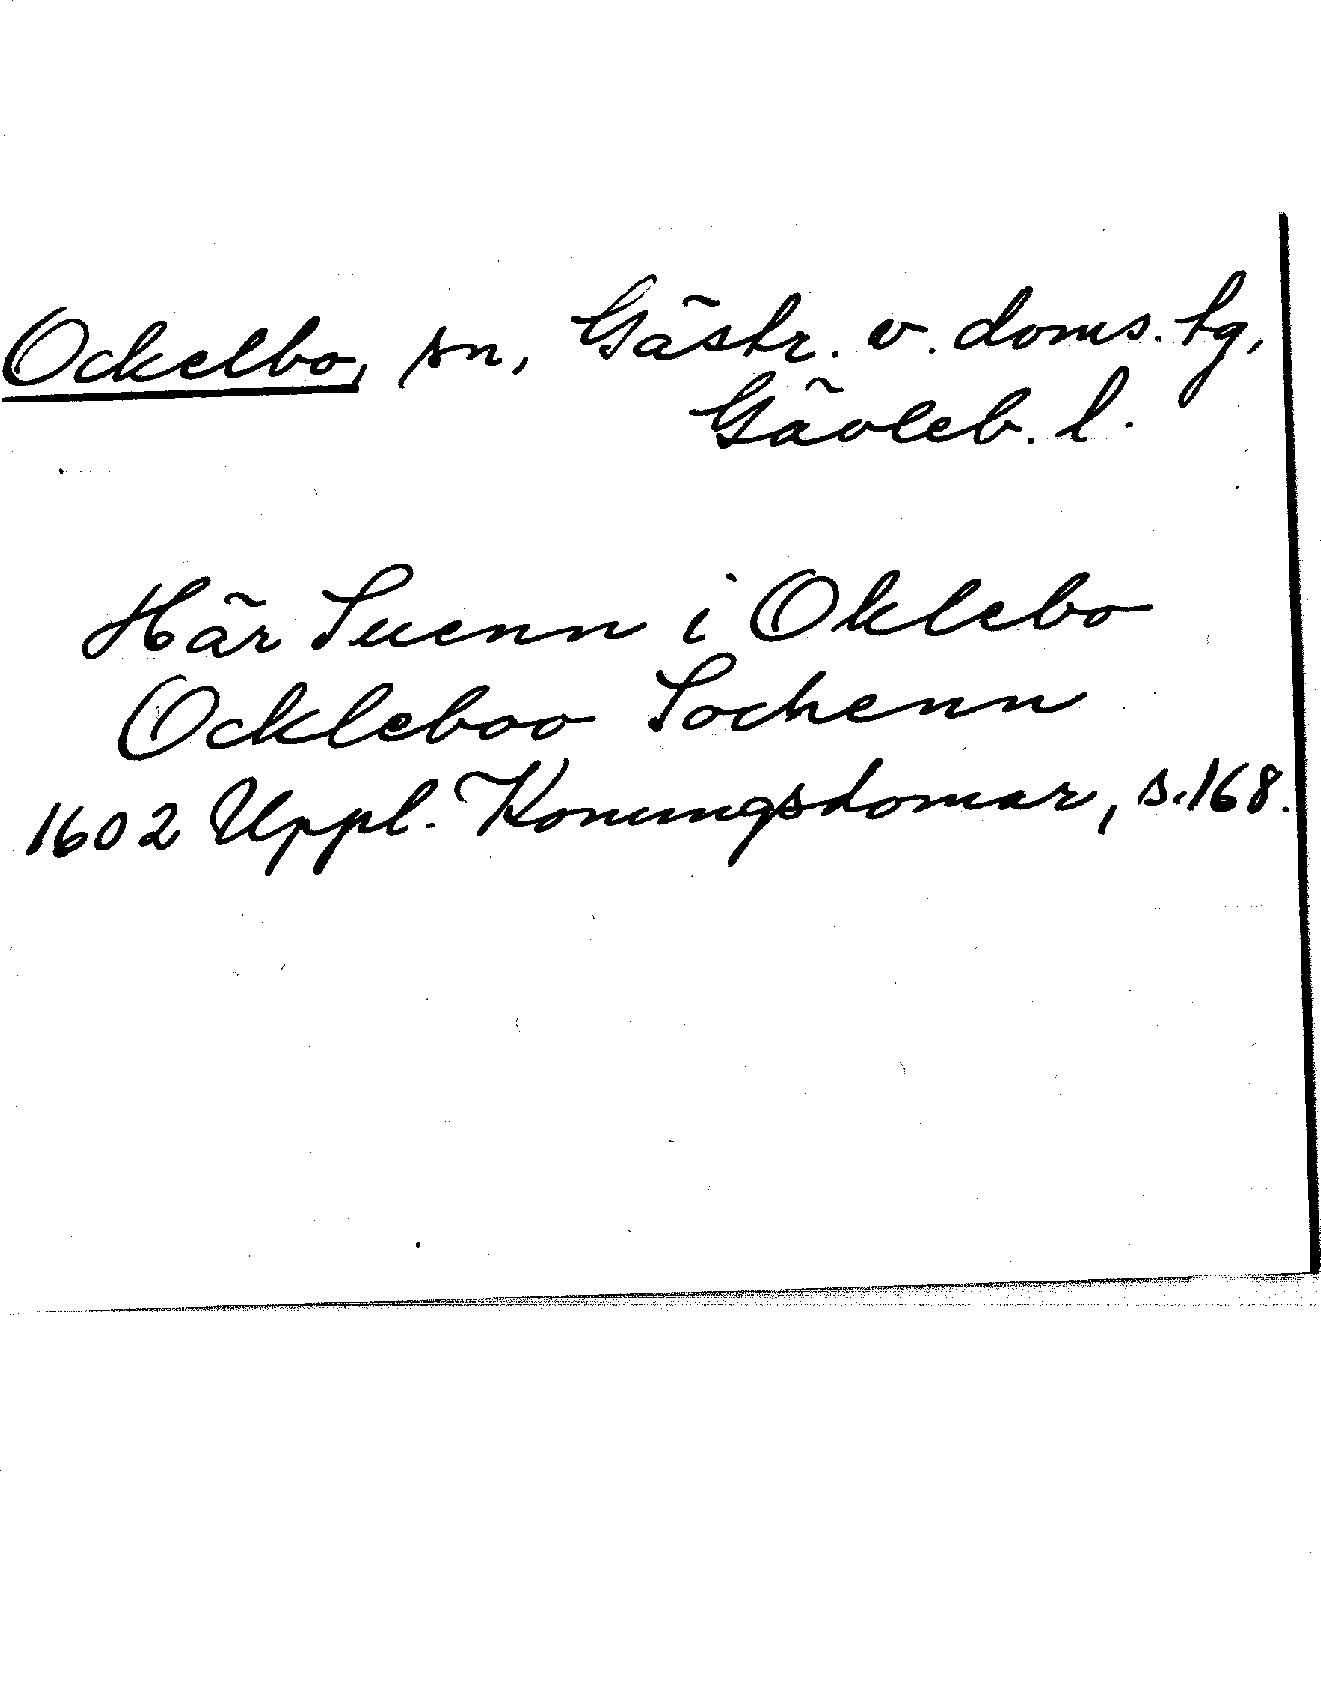 Ockelbo, sn, Gästr. v. doms. tg,
Gävleb. l.
Här Suenn i Oklebo
Ockleboo Sochenn
1602 Uppl. Konungsdomar, s. 168.